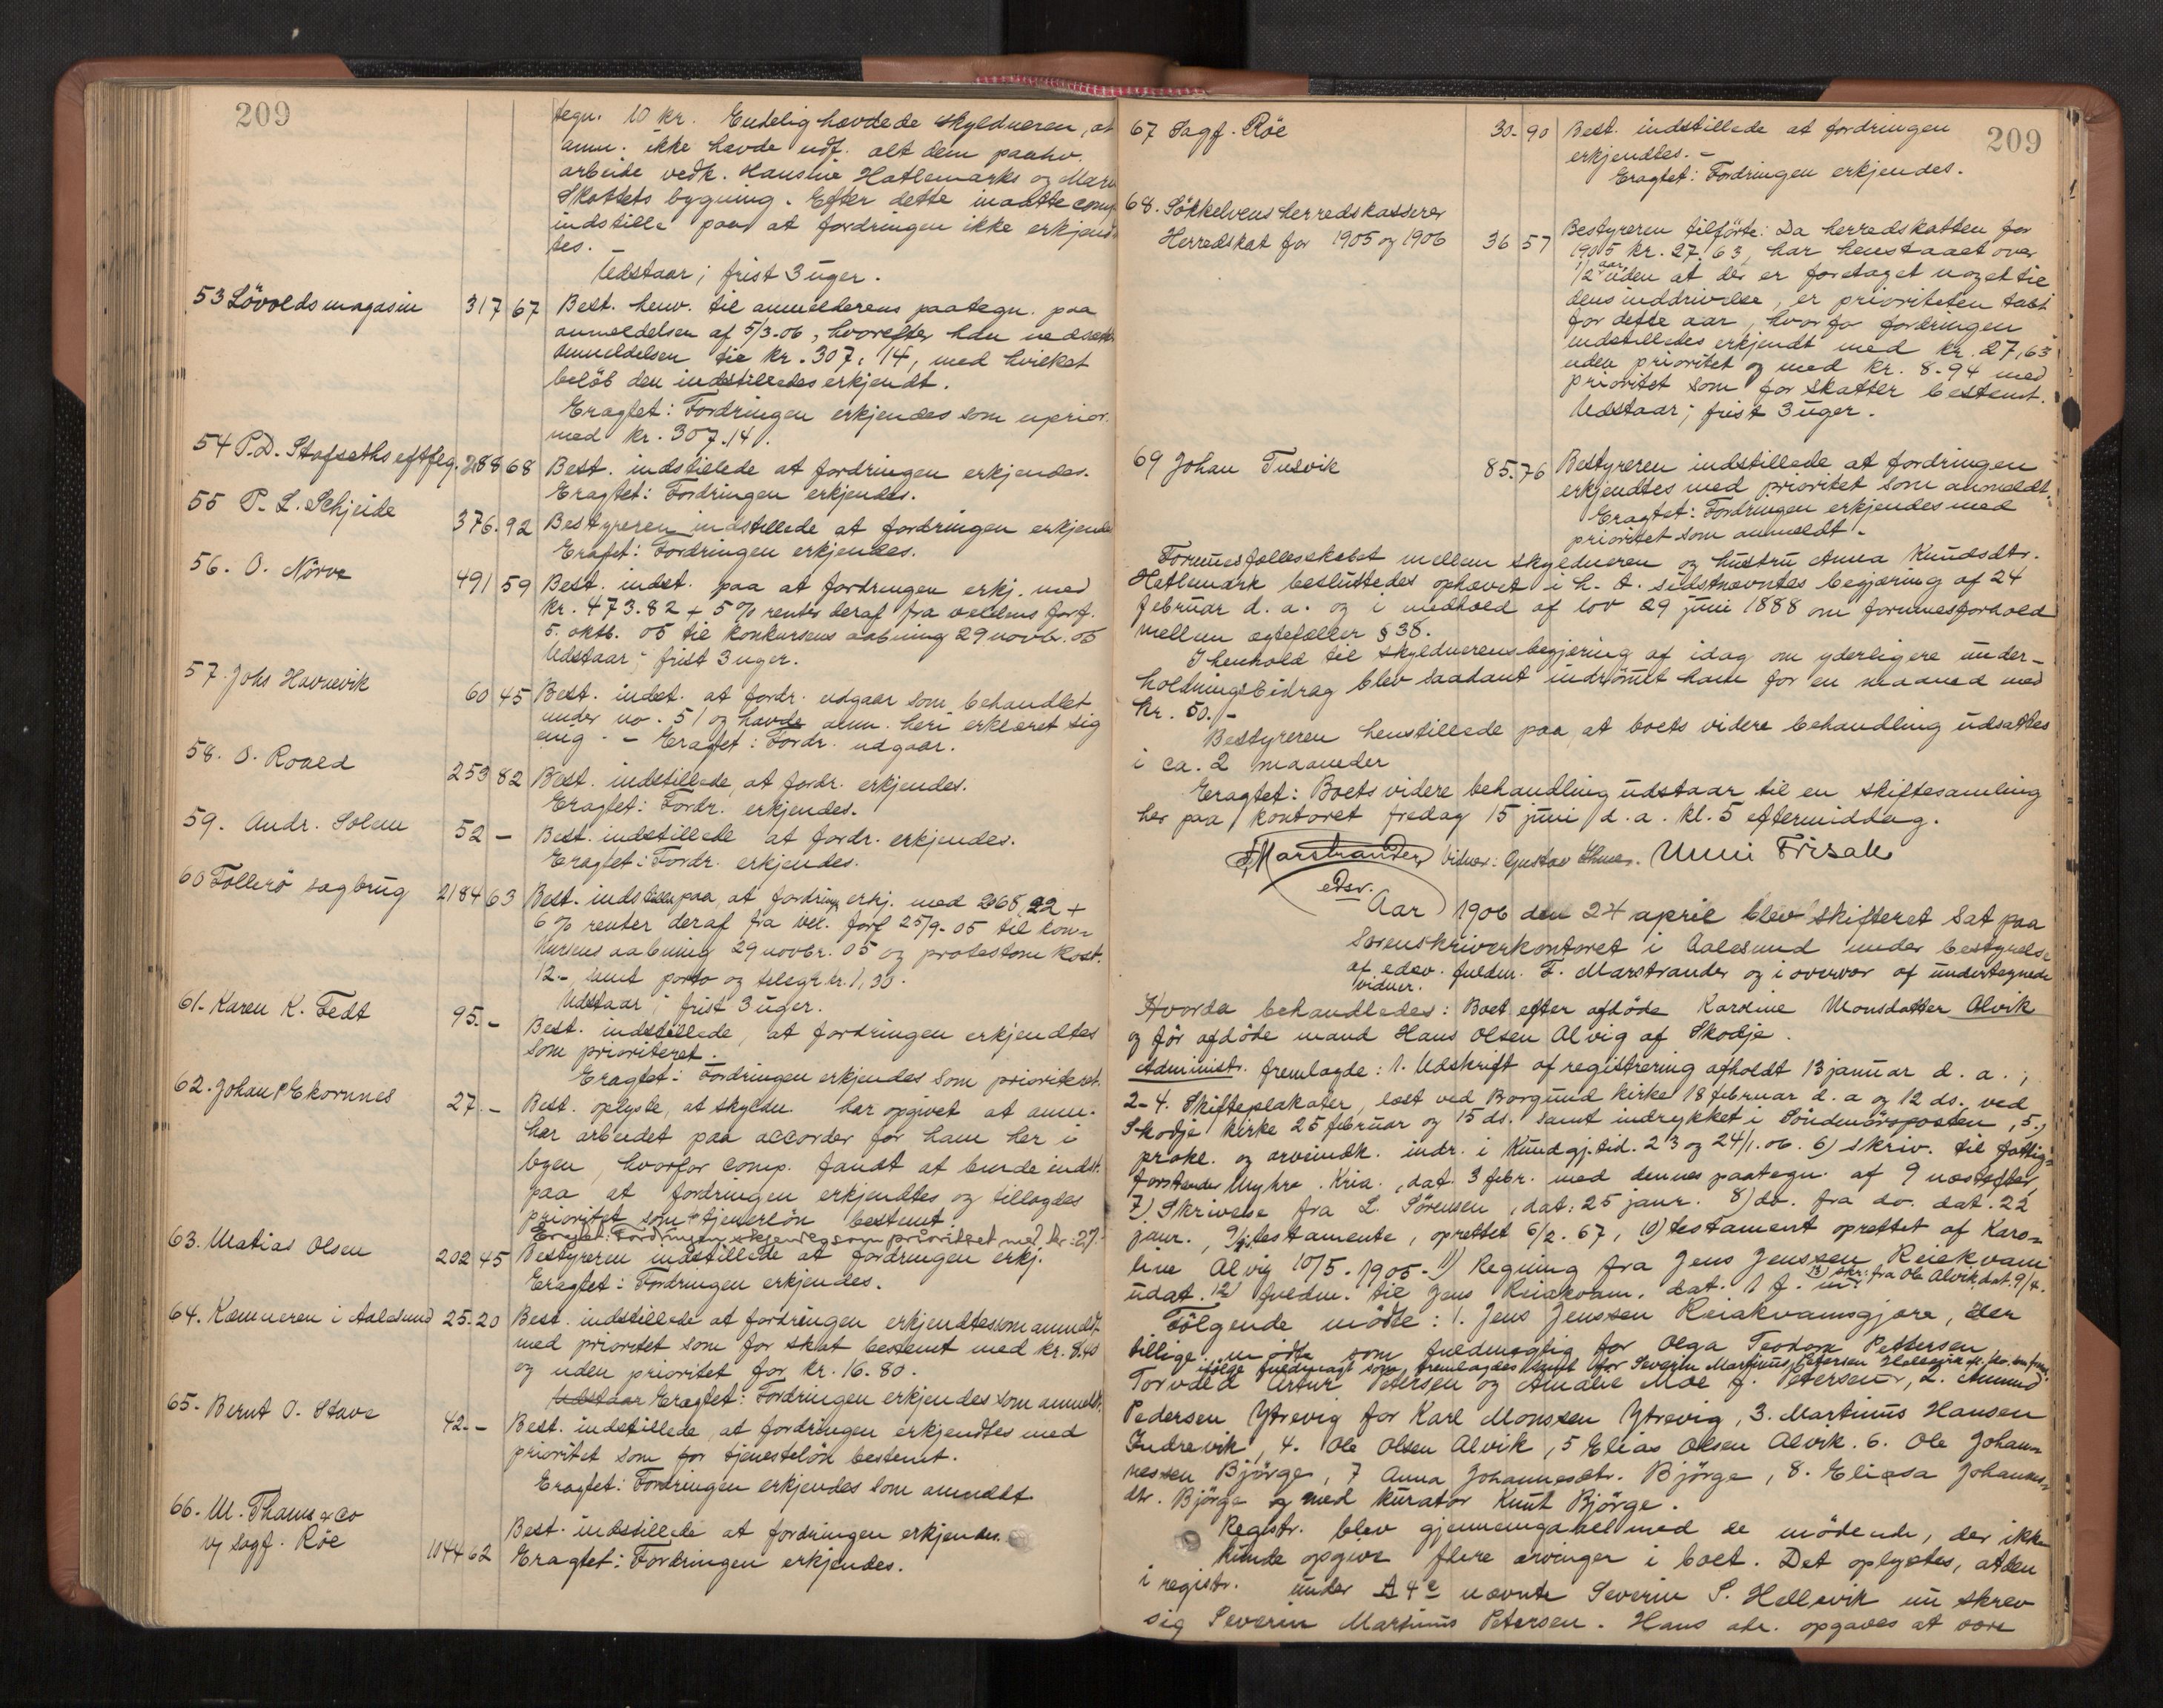 209
tegn. 10 kr. Endelig hævdede skyldneren, at
anm. ikke havde udf. alt dem paahv.
arbeide vedk. Hansine Hatlemarks og Marn
Skottets bygning. Efter dette maatte comp
indstille paa at fordringen ikke erkjend-
tes.
Udstaar; frist 3 uger.
53 Lövolds magasin 317 67 Best. henv. til anmelderens paategn. paa
anmeldelsen af 5/3-06, hvorefter han nedsætt.
anmeldelsen til kr. 307.14, med hvilket
belöb den indstilledes erkjendt.
Eragtet: Fordringen erkjendes som uprior.
med kr. 307.14.
54 P.D. Stafseths eftflg. 288 68 Best. indstillede at fordringen erkjendes.
Eragtet: Fordringen erkjendes.
55 P. L. Schjeide 376.92 Bestyreren indstillede at fordringen erkjende
Eragtet: Fordringen erkjendes.
56. O. Nörve 491 59 Best. indst. paa at fordringen erkj. med
kr. 473.82 + 5 % renter deraf fra vexlens forf.
5. oktb. 05 til konkursens aabning 29 novbr. 05
Udstaar; frist 3 uger.
57. Johs Havnevik 60 45 Best. indst. at fordr. udgaar som behandlet
under no. 51 og havde anm. heri erklæret sig
enig. - Eragtet: Fordr. udgaar.
58. O. Roald 253 82 Best. indstillede, at fordr. erkjendes.
Eragtet: Fordr. erkjendes.
59. Andr. Solem 52 - Best. indstillede at fordr. erkjendes.
Eragtet: Fordr. erkjendes.
60 Follerö sagbrug 2184 63 Best. indstiller paa, at fordring erkj. med 2068,22 +
6 % renter deraf fra vel. forf 25/9-05 til kon-
kursens aabning 29 novbr. 05 og protestomkost.
12.- samt porto og telegr. kr. 1,30.
Udstaar; frist 3 uger.
61. Karen K. Fedt 95.- Best. indstillede, at fordringen erkjendtes
som prioriteret.
Eragtet: Fordringen erkjendes som prioriteret.
62. Johan P Ekornnes 27.- Best. oplyste, at skyldn. har opgivet at anm.
har arbeidet paa accorder for ham her i
byen, hvorfor comp. fandt at burde indst.
paa at fordringen erkjendtes og tillagdes
prioritet som tjenerlön bestemt.
Eragtet: Fordringen erkjendes som prioritset med kr. 27.-
63. Matias Olsen 202 45 Bestyreren indstillede at fordringen erkj.
Eragtet: Fordringen erkjendes.
64. Kæmneren i Aalesund 25.20 Best. indstillede at fordringen erkjendtes som anmeldt
med prioritet som for skat bestemt med kr. 8.40
og uden prioritet for kr. 16.80.
Udstaar Eragtet: Fordringen erkjendes som anmeldt.
65. Bernt O. Stave 42.- Best. indstillede, at fordringen erkjendtes med
prioritet som for tjenestelön bestemt.
Eragtet: Fordringen erkjendes som anmeldt
66. M. Thams & Co
v/ sagf. Röe 1044 62 Best. indstillede at fordringen erkjendes.
Eragtet: Fordringen erkjendes.
209
67 Sagf. Röe 30-90 Best. indstillede at fordringen
erkjendtes. -
Eragtet: Fordringen erkjendes.
68. Sökkelvens herredskasserer
Herredskat for 1905 og 1906 36 57 Bestyreren tilförte: Da herredskatten for
1905 kr. 27,63, har henstaaet over
1/2 aar uden at der er foretaget noget til
dens inddrivelse, er prioriteten tabt
for dette aar, hvorfor fordringen
indstilledes erkjendt med kr. 27,63
uden prioritet og med kr. 8.94 med
prioritet som for skatter bestemt.
Udstaar; frist 3 uger.
69 Johan Tusvik 85.76 Bestyreren indstillede at fordringen
erkjendtes med prioritet som anmeldt.
Eragtet: Fordringen erkjendes med
prioritet som anmeldt.
Formuesfællesskabet mellem skyldneren og hustru Anna Knudsdtr.
Hatlemark besluttedes ophævet i h. t. sidstnævntes begjæring af 24
februar d. a. og i medhold af lov 29 juni 1888 om formuesforhold
mellem ægtefæller § 38.
I henhold til skyldnerens begjæring af idag om yderligere under-
holdningsbidrag blev saadant indrömmet ham for en maaned med
kr. 50.-
Bestyreren henstillede paa, at boets videre behandling udsattes
i ca. 2 maaneder
Eragtet: Boets videre behandling udstaar til en skiftesamling
her paa kontoret fredag 15 juni d. a. kl. 5 eftermiddag.
F Marstrander Vidner: Gustav Unni Frisak
edsv.
Aar 1906 den 24 april blev skifteret sat paa
Sorenskriverkontoret i Aalesund under bestyrelse
af edsv. fuldm. F. Marstrander og i overvær af undertegnede
vidner.
Hvorda behandledes: Boet efter afdöde Karoline Monsdatter Alvik
og för afdöde mand Hans Olsen Alvig af Skodje.
Administr. fremlagde: 1. Udskrift af registrering afholdt 13 januar d. a.;
2-4. Skifteplakater, læst ved Borgund kirke 18 februar d. a og 12 ds. ved
Skodje kirke 25 februar og 15 ds. samt indrykket i Söndmörsposten, 5.)
prokl. og arveindk. indr. i Kundgj.tid. 23 og 24/1.06. 6) skriv. til fattig-
forstander Myhre. Kria., dat. 3 febr. med dennes paategn. af 9 næstefter,
7) Skrivelse fra L. Sörensen, dat: 25 janr. 8) do. fra do. dat. 22
janr., 9) testamente, oprettet 6/2.67, 10) testament oprettet af Karo-
line Alvig 10/5.1905. 11) Regning fra Jens Jenssen Reiakvam
udat. 12) fuldm. til Jens Reiakvam. dat. 1 f. m. 13) skr. fra Ole Alvik dat. 9/4.
Fölgende mödte: 1. Jens Jenssen Reiakvamsgjære, der
tillige mödte som fuldmægtig for Olga Teodora Pettersen
ifölge fuldmagt som fremlagdes samt for Severin Martinius Petersen Hellevik
Torvald Artur Petersen og Amalie Moe f. Petersen, 2. Amund
Pedersen Ytrevig for Karl Monssen Ytrevig, 3. Martinus Hansen
Indrevik, 4. Ole Olsen Alvik, 5 Elias Olsen Alvik. 6. Ole Johan-
nessen Björge, 7 Anna Johannesdtr. Björge, 8. Eliasa Johannes-
dtr. Björge og med kurator Knut Björge.
Registr. blev gjennemgaaet med de mödende, der ikke
kunde opgive flere arvinger i boet. Det oplystes, at den
i registr. under A 4 e nævnte Severin S. Hellevik nu skrev
sig Severin Martinus Petersen. Hans adr. opgaves at være